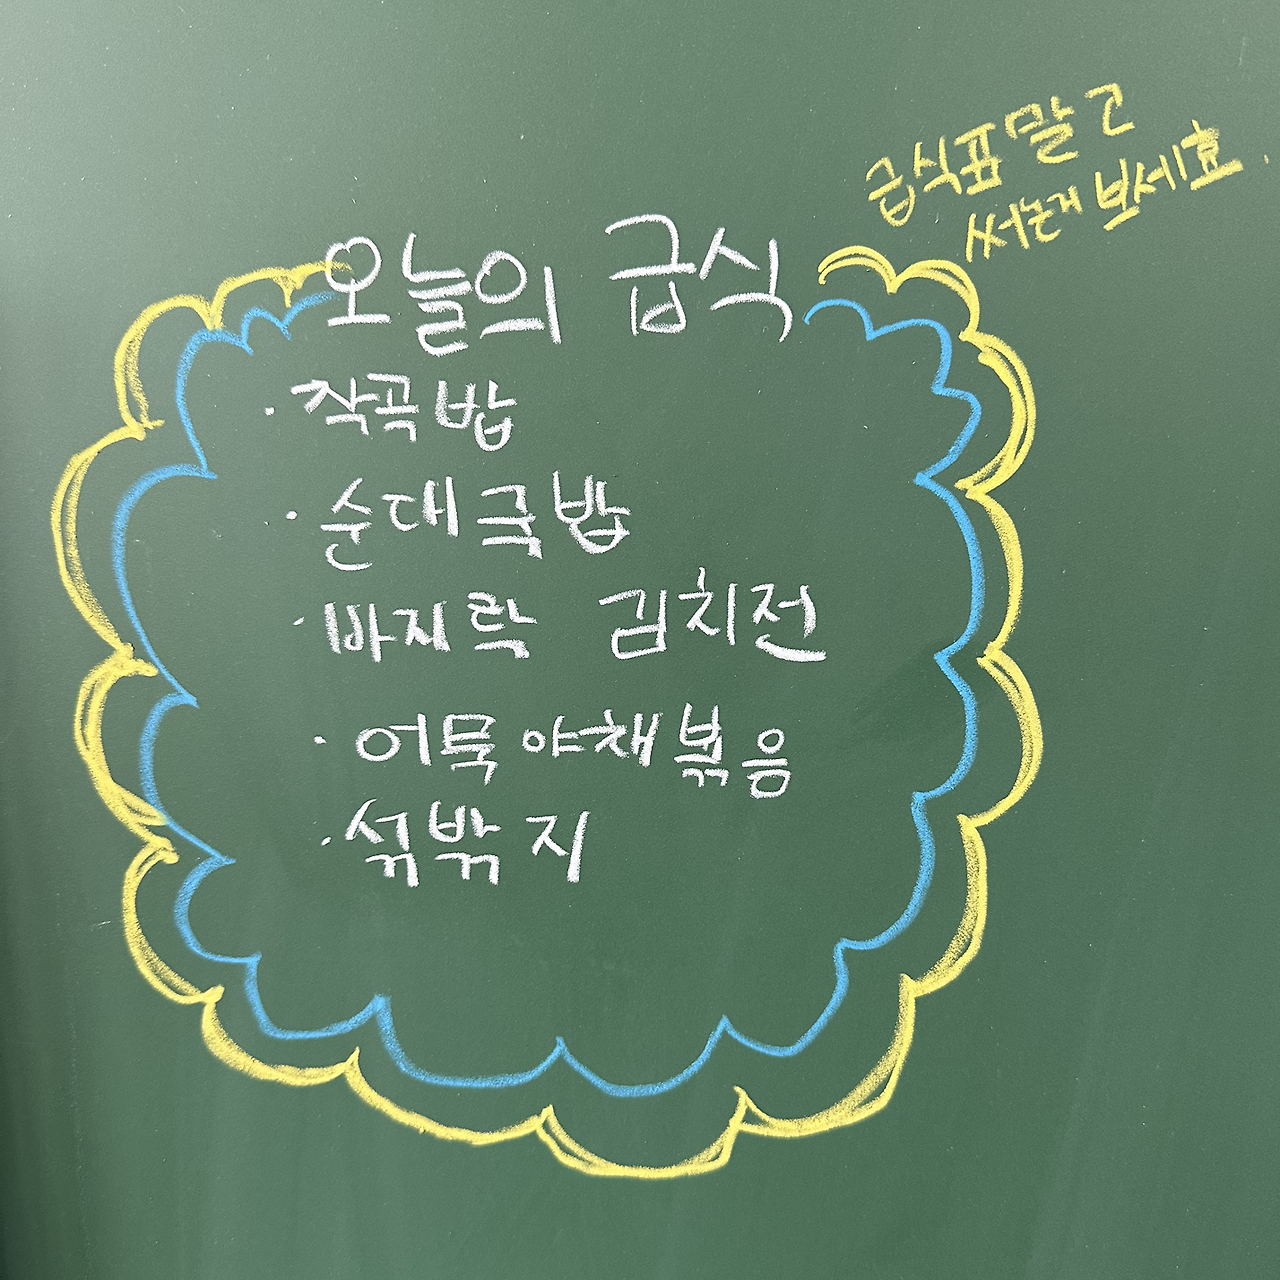 급식표 말고
써논거 보세효.
오늘의 급식
· 착곡밥
· 순대국밥
· 바지락 김치전
· 어묵야채볶음
· 섞밖지